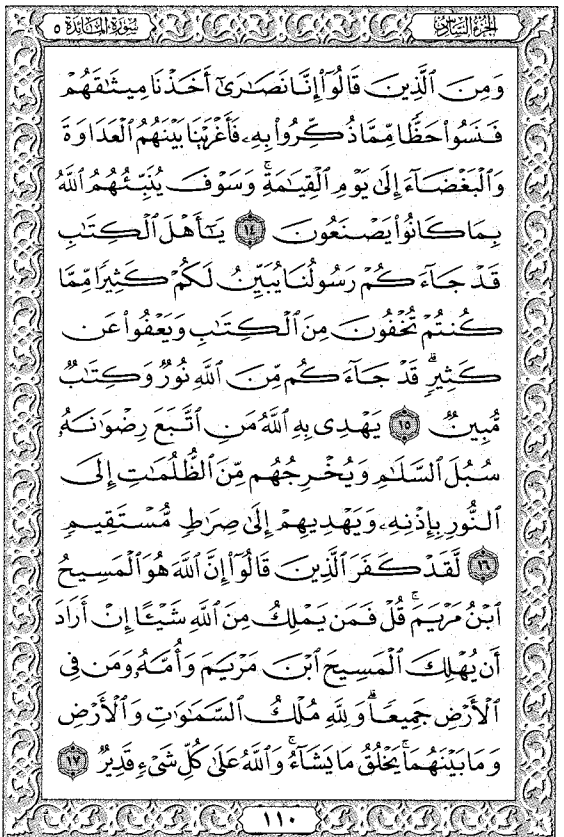 الجزء السادس
سورة المائدة ٥
وَمِنَ ٱلَّذِينَ قَالُوٓا۟ إِنَّا نَصَـٰرَىٰٓ أَخَذْنَا مِيثَـٰقَهُمْ
فَنَسُوا۟ حَظًّا مِّمَّا ذُكِّرُوا۟ بِهِۦ فَأَغْرَيْنَا بَيْنَهُمُ ٱلْعَدَاوَةَ
وَٱلْبَغْضَآءَ إِلَىٰ يَوْمِ ٱلْقِيَـٰمَةِ ۚ وَسَوْفَ يُنَبِّئُهُمُ ٱللَّهُ
بِمَا كَانُوا۟ يَصْنَعُونَ ١٤ يَـٰٓأَهْلَ ٱلْكِتَـٰبِ
قَدْ جَآءَكُمْ رَسُولُنَا يُبَيِّنُ لَكُمْ كَثِيرًا مِّمَّا
كُنتُمْ تُخْفُونَ مِنَ ٱلْكِتَـٰبِ وَيَعْفُوا۟ عَن
كَثِيرٍ ۚ قَدْ جَآءَكُم مِّنَ ٱللَّهِ نُورٌ وَكِتَـٰبٌ
مُّبِينٌ ١٥ يَهْدِى بِهِ ٱللَّهُ مَنِ ٱتَّبَعَ رِضْوَٰنَهُۥ
سُبُلَ ٱلسَّلَـٰمِ وَيُخْرِجُهُم مِّنَ ٱلظُّلُمَـٰتِ إِلَى
ٱلنُّورِ بِإِذْنِهِۦ وَيَهْدِيهِمْ إِلَىٰ صِرَٰطٍ مُّسْتَقِيمٍ
١٦ لَّقَدْ كَفَرَ ٱلَّذِينَ قَالُوٓا۟ إِنَّ ٱللَّهَ هُوَ ٱلْمَسِيحُ
ٱبْنُ مَرْيَمَ ۚ قُلْ فَمَن يَمْلِكُ مِنَ ٱللَّهِ شَيْـًٔا إِنْ أَرَادَ
أَن يُهْلِكَ ٱلْمَسِيحَ ٱبْنَ مَرْيَمَ وَأُمَّهُۥ وَمَن فِى
ٱلْأَرْضِ جَمِيعًا ۗ وَلِلَّهِ مُلْكُ ٱلسَّمَـٰوَٰتِ وَٱلْأَرْضِ
وَمَا بَيْنَهُمَا ۚ يَخْلُقُ مَا يَشَآءُ ۚ وَٱللَّهُ عَلَىٰ كُلِّ شَىْءٍ قَدِيرٌ ١٧
١١٠